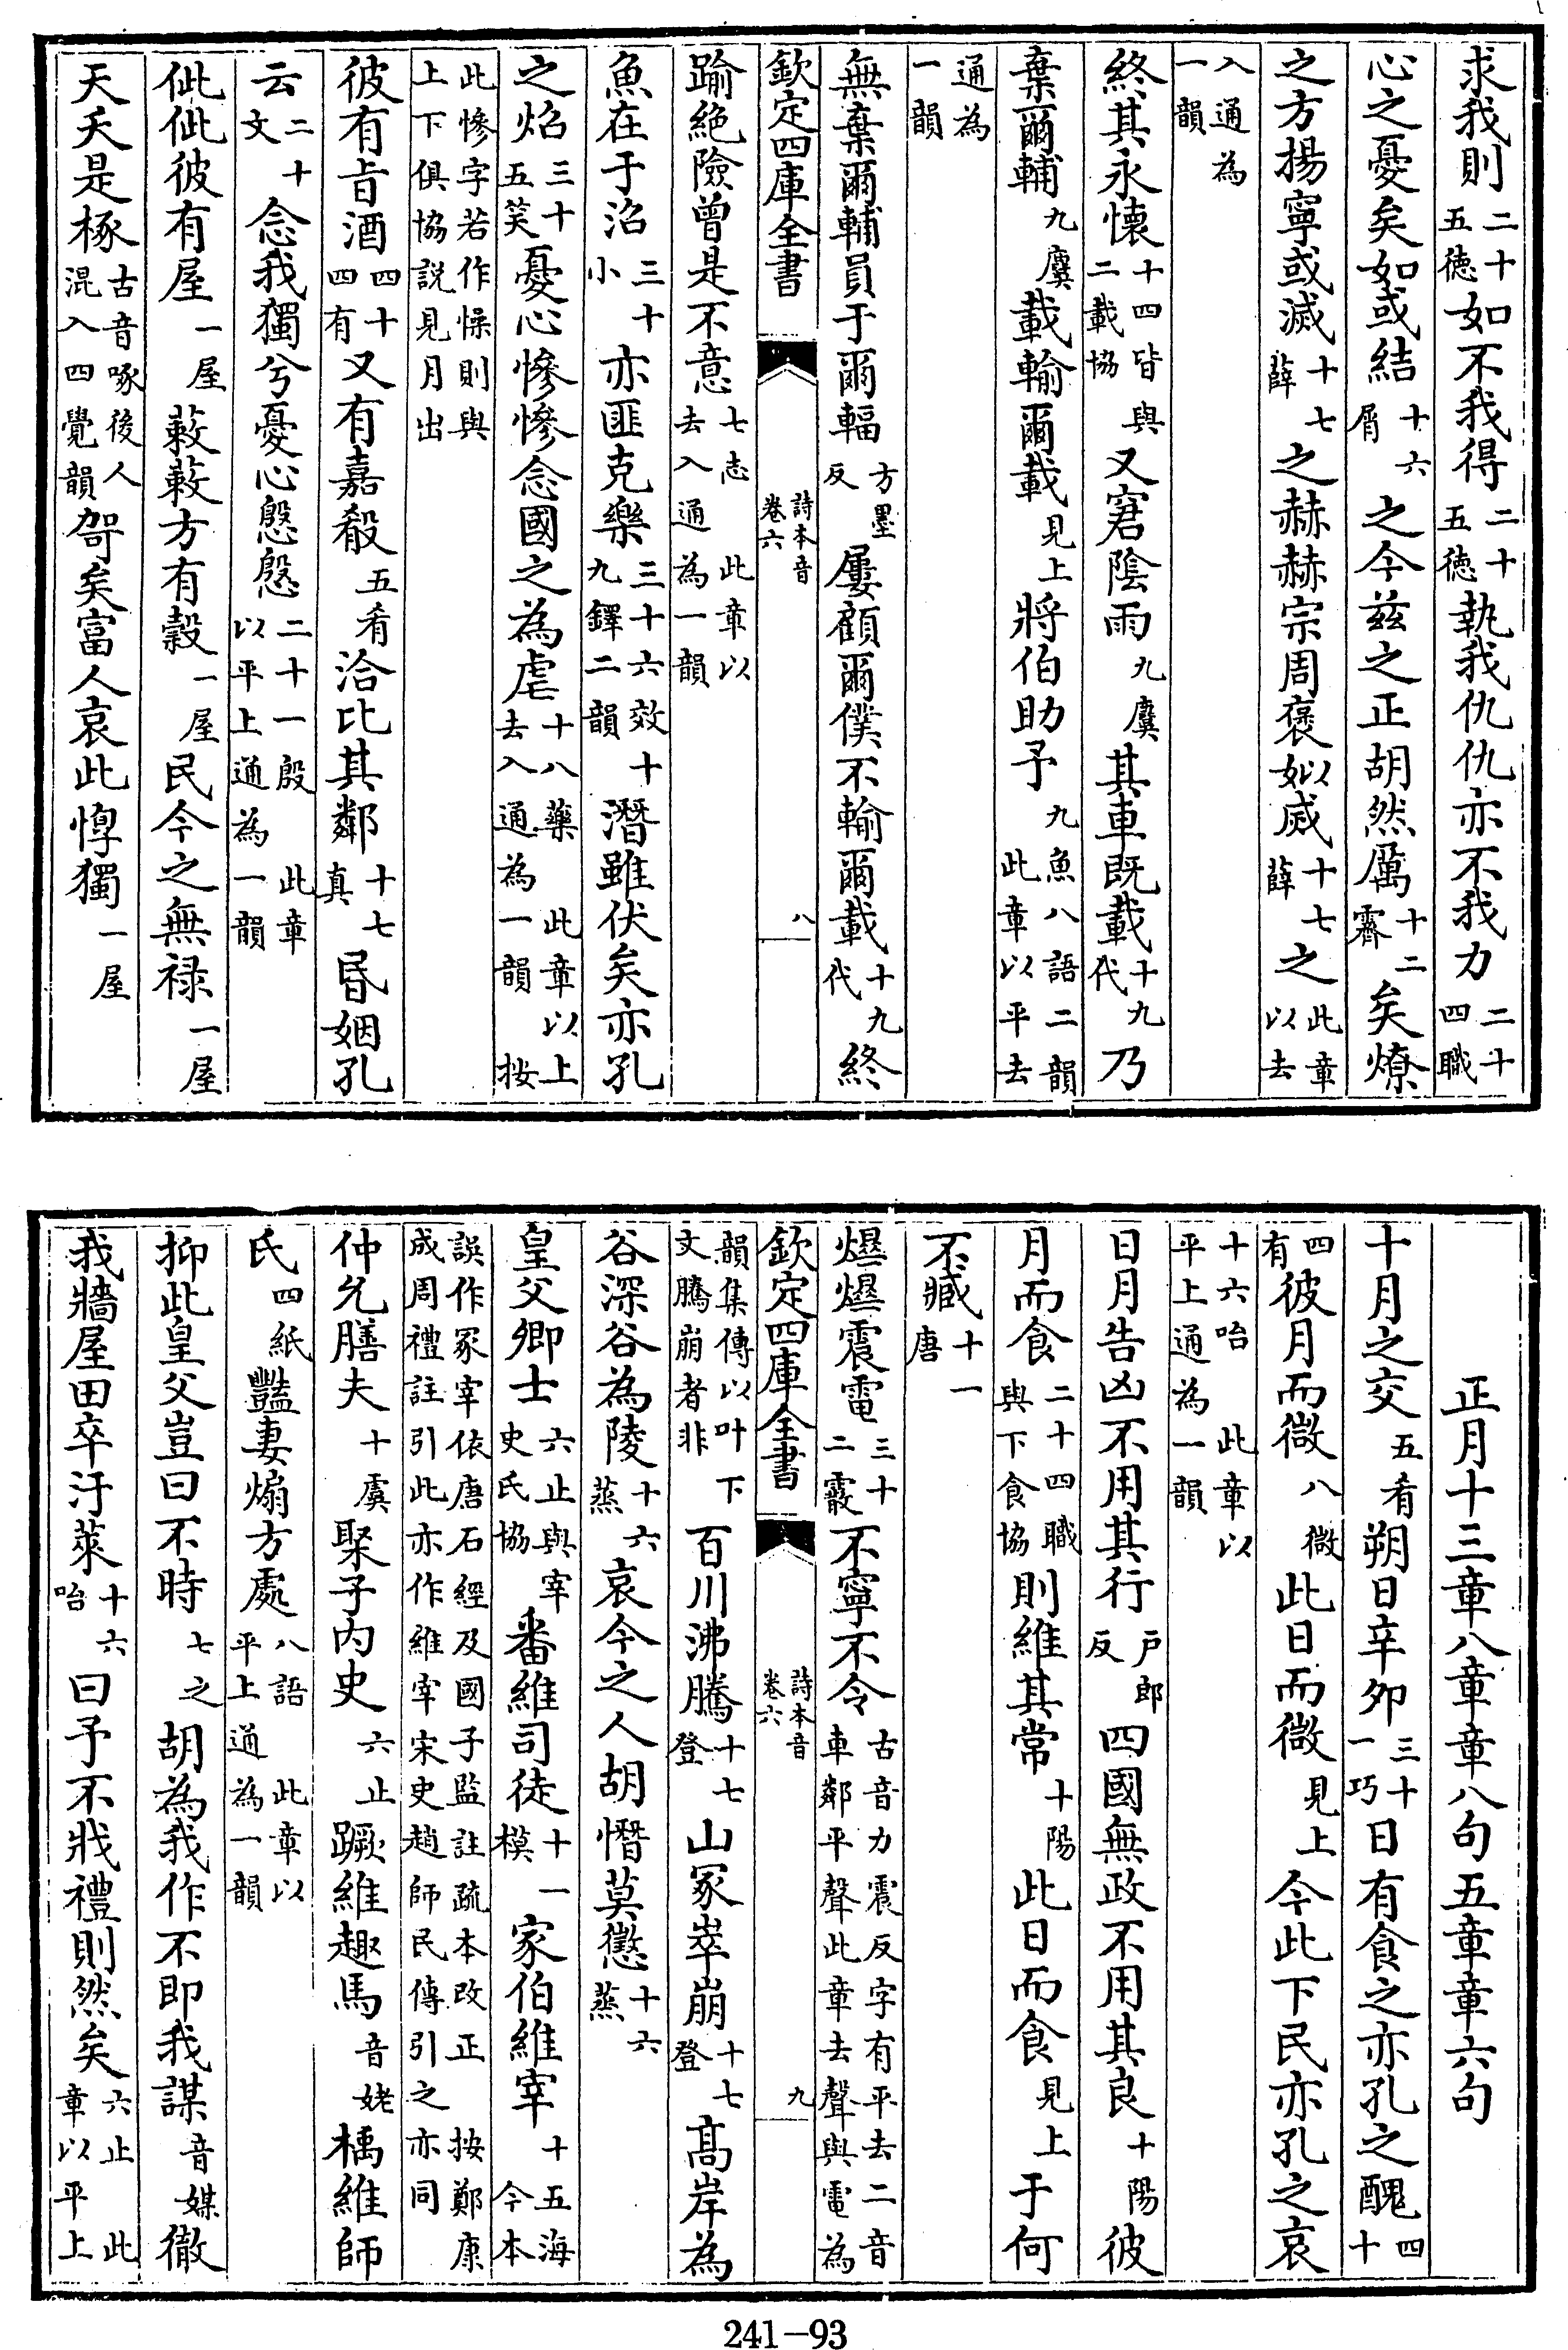 求我則二十五徳如不我得二十五徳執我仇仇亦不我力二十四職
心之憂矣如或結十六屑之今兹之正胡然厲十二霽矣燎
之方揚寧或滅十七薛之赫赫宗周褒姒烕十七薛之此章以去
入通為一韻
終其永懐十四皆與二載協又窘陰雨九麌其車既載十九代乃
棄爾輔九麌載輸爾載見上將伯助予九魚八語二韻此章以平去
通為一韻
無棄爾輔員于爾輻方墨反屢顧爾僕不輸爾載十九代終
欽定四庫全書 詩本音卷六 八
踰絶險曾是不意七志此章以去入通為一韻
魚在于沼三十小亦匪克樂三十六效十九鐸二韻潛雖伏矣亦孔
之炤三十五笑憂心慘慘念國之為虐十八藥此章以上去入通為一韻按
此慘字若作懆則與上下俱協説見月出
彼有旨酒四十四有又有嘉殽五肴洽比其鄰十七真昏姻孔
云二十文念我獨兮憂心慇慇二十一殷此章以平上通為一韻
佌佌彼有屋一屋蔌蔌方有穀一屋民今之無禄一屋
天夭是椓古音啄後人混入四覺韻哿矣富人哀此惸獨一屋
正月十三章八章章八句五章章六句
十月之交五肴朔日辛卯三十一巧日有食之亦孔之醜四十
四有彼月而微八微此日而微見上今此下民亦孔之哀
十六咍此章以平上通為一韻
日月告凶不用其行戸郎反四國無政不用其良十陽彼
月而食二十四職與下食協則維其常十陽此日而食見上于何
不臧十一唐
爆爆震電三十二霰不寧不令古音力震反字有平去二音車鄰平聲此章去聲與電為
欽定四庫全書 詩本音卷六 九
韻集傳以叶下文騰崩者非百川沸騰十七登山冢崒崩十七登髙岸為
谷深谷為陵十六蒸哀今之人胡憯莫懲十六蒸
皇父卿士六止與宰史氏協番維司徒十一模家伯維宰十五海今本
誤作冢宰依唐石經及國子監註疏本改正按鄭康成周禮註引此亦作維宰宋史趙師民傳引之亦同
仲允膳夫十虞聚子内史六止蹶維趣馬音姥楀維師
氏四紙豔妻煽方處八語此章以平上通為一韻
抑此皇父豈曰不時七之胡為我作不即我謀音媒徹
我牆屋田卒汙萊十六咍曰予不戕禮則然矣六止此章以平上
241-93